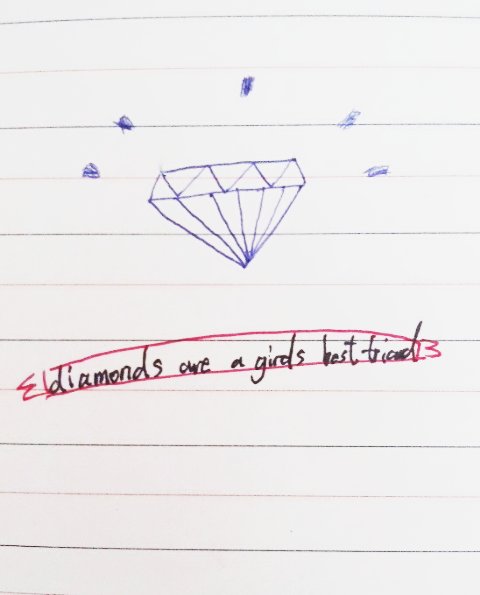 diamonds are a girls best friend